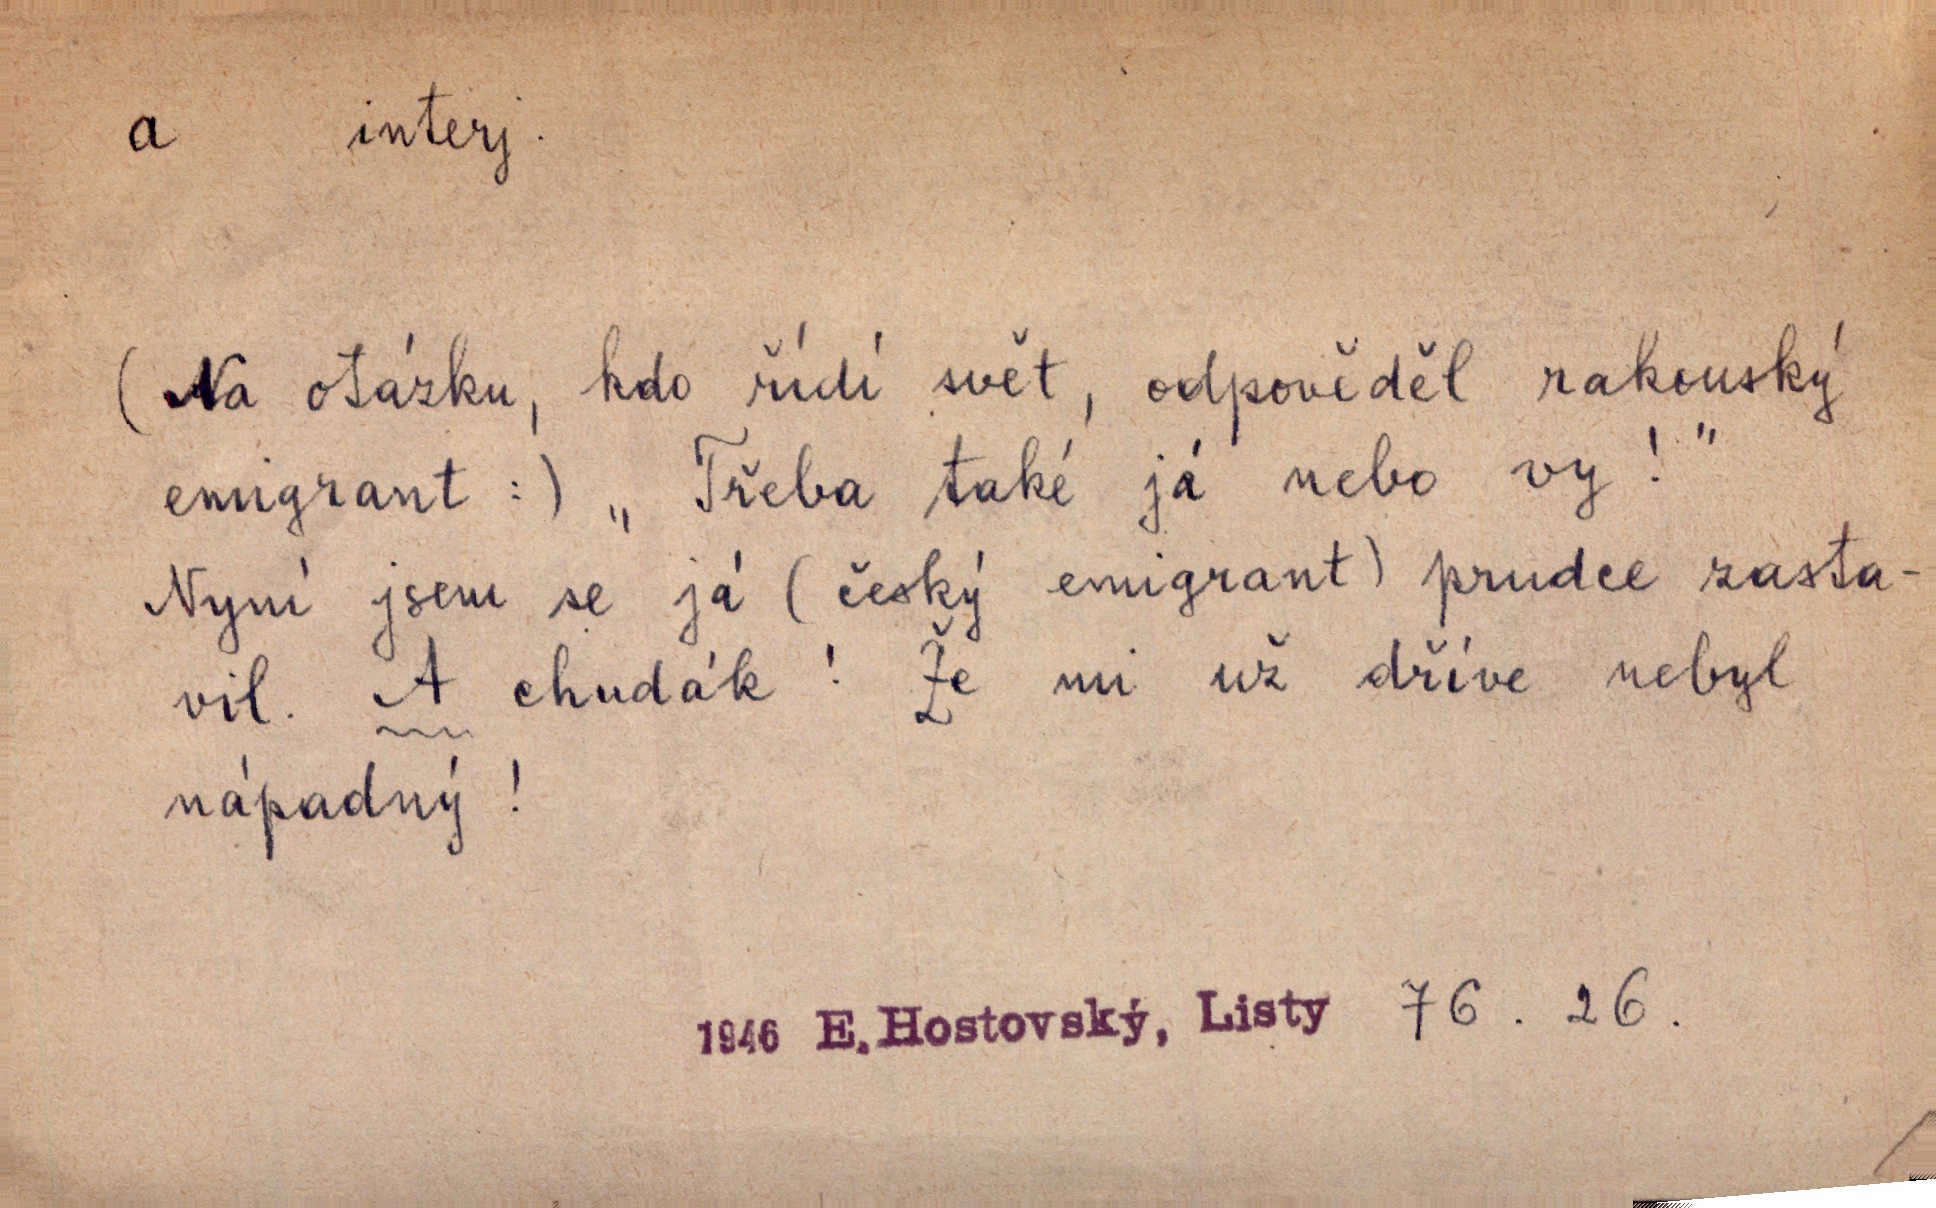 a interj.
(Na otázku, kdo řídí svět, odpověděl rakouský
emigrant:) „Třeba také já nebo vy!"
Nyní jsem se já (český emigrant) prudce zasta-
vil. A chudák! Že mi už dříve nebyl
nápadný!
1946 E. Hostovský, Listy 76. 26.